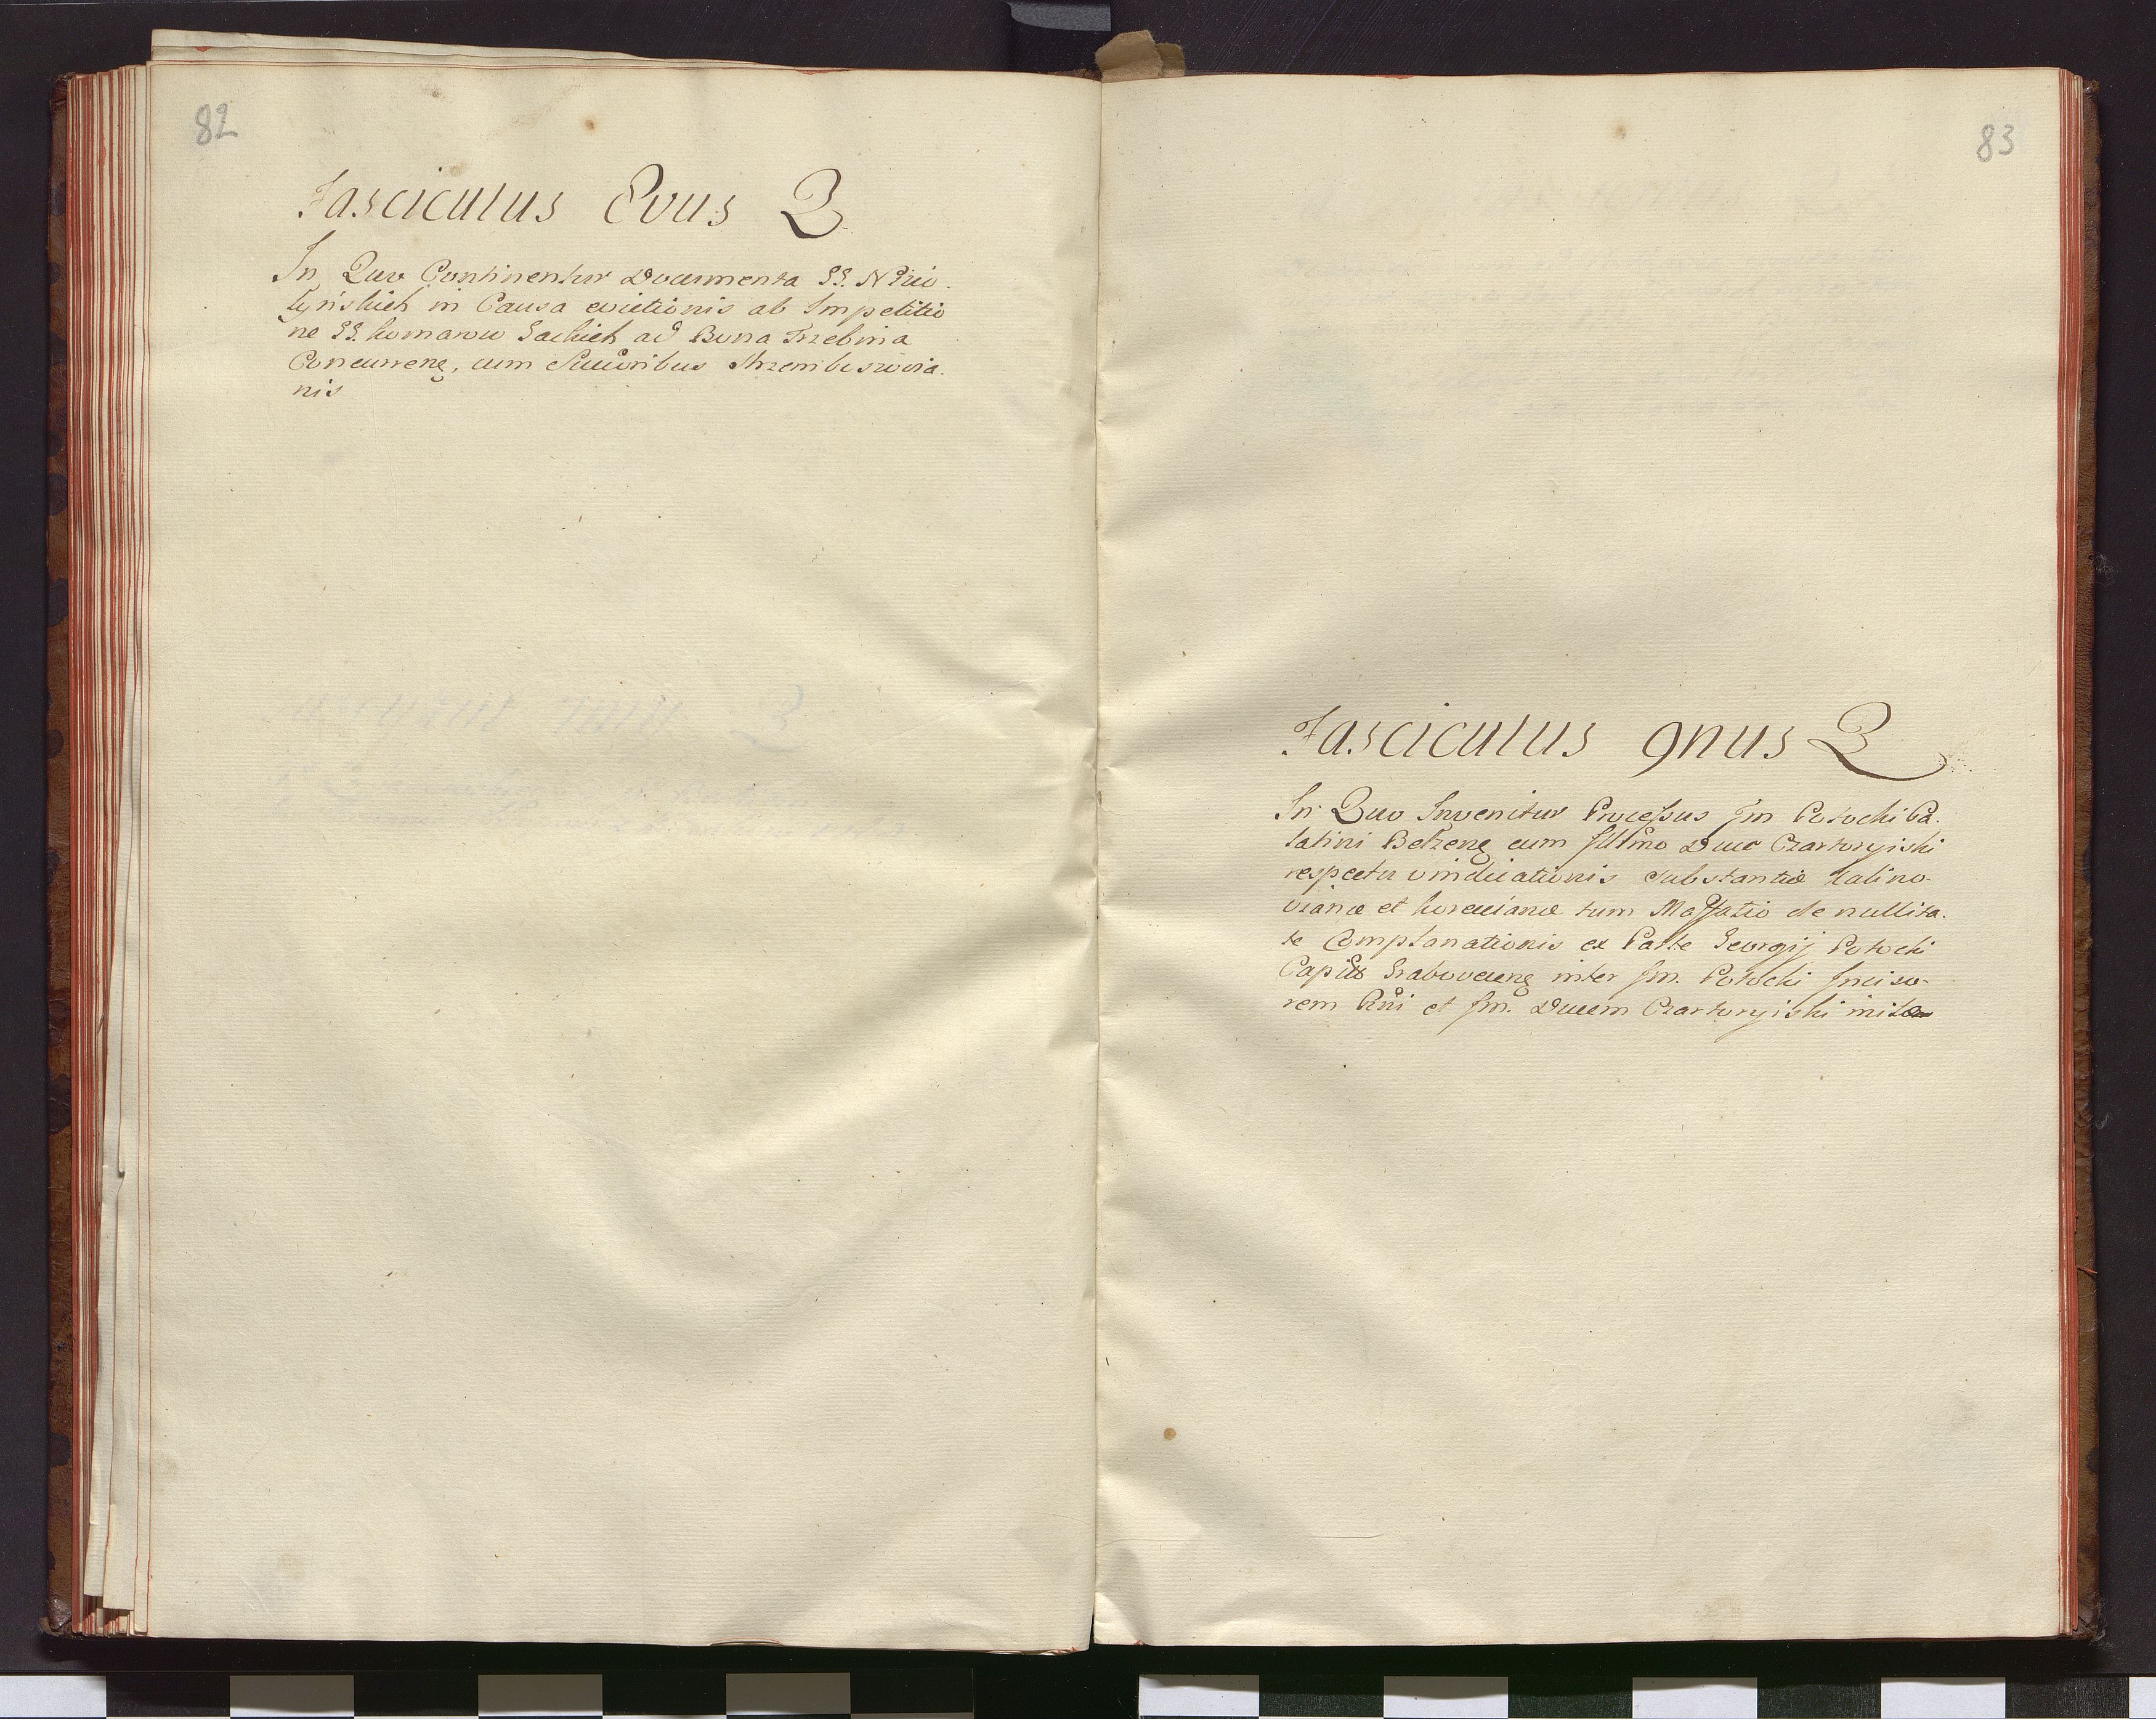 82
Fasciculus 8vus Q
In Quo Continentur Documenta SS.
in Causa evictionis ab Impetitio
ne SS. Komarow Sackich ad Bona Trzebinia
Concurrenę, cum Strzembeszovia.
nis
83
Fasciculus 9nus Q
In Quo Invenitur Processus Jm Potocki Pa.
latini Belzenę cum Illmo Duce Czartoryiski
respectu vindicationis substantiæ Kalino-
vianæ et Koreciance tum de nullita.
te Complanationis ex Parte Georgij Potocki
Capitt Grabovecenę inter Jm. Potocki Inciso-
rem Rni et Jm. Ducem Czartoryiski initæ